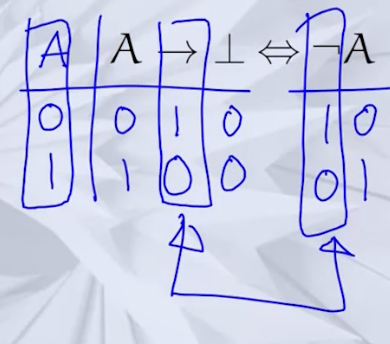 A A → ⊥ ⇔ ¬A
0 0 1 0 1 0
1 1 0 0 0 1